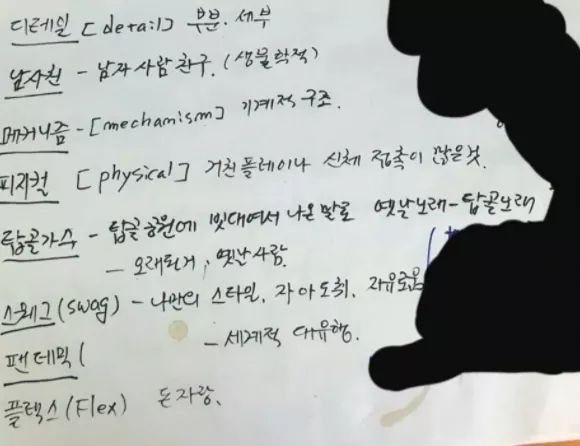 디테일 [detail] 부분. 세부
남사친 - 남자 사람 친구. (생물학적)
메커니즘 - [mechanism] 기계적 구조.
피지컬 [physical] 거친 플레이나 신체 접촉이 많은것.
탑골가수 - 탑골공원에 빗대여서 나온 말로 옛날노래 - 탑골노래
- 오래되거, 옛날사람.
스웨그 (swag) - 나만의 스타일, 자아도취, 자유로움
팬데믹 ( - 세계적 대유행.
플렉스 (Flex) 돈자랑.